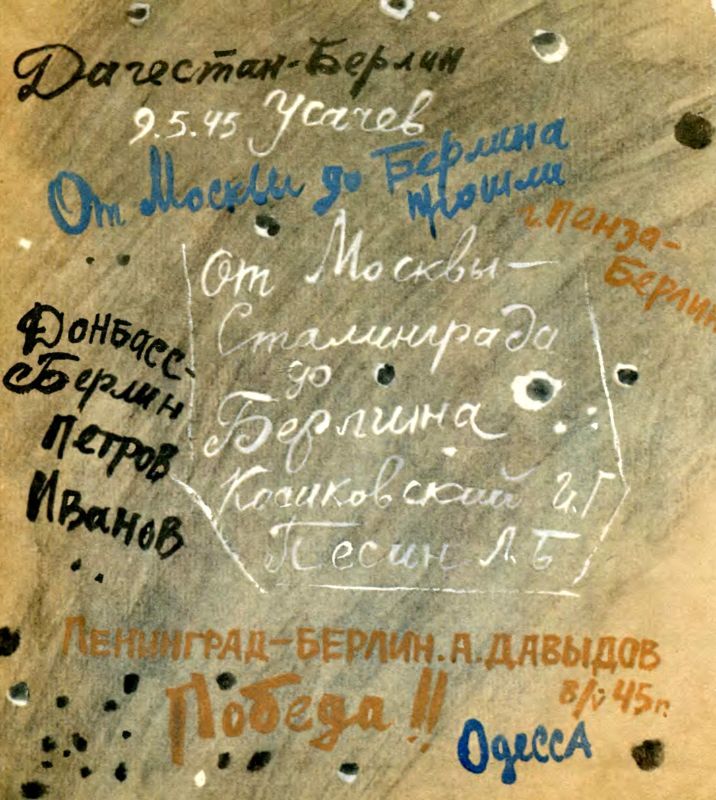 Дагестан-Берлин
9.5.45 Усачев
От Москвы до Берлина
прошли
г. Пенза-
Берлин
От Москвы-
Сталинграда
до
Берлина
Косиковский И.Г
Песин Л.Б
Донбасс-
Берлин
Петров
Иванов
ЛЕНИНГРАД-БЕРЛИН. А. ДАВЫДОВ
8/V 45 г.
Победа!!
Одесса